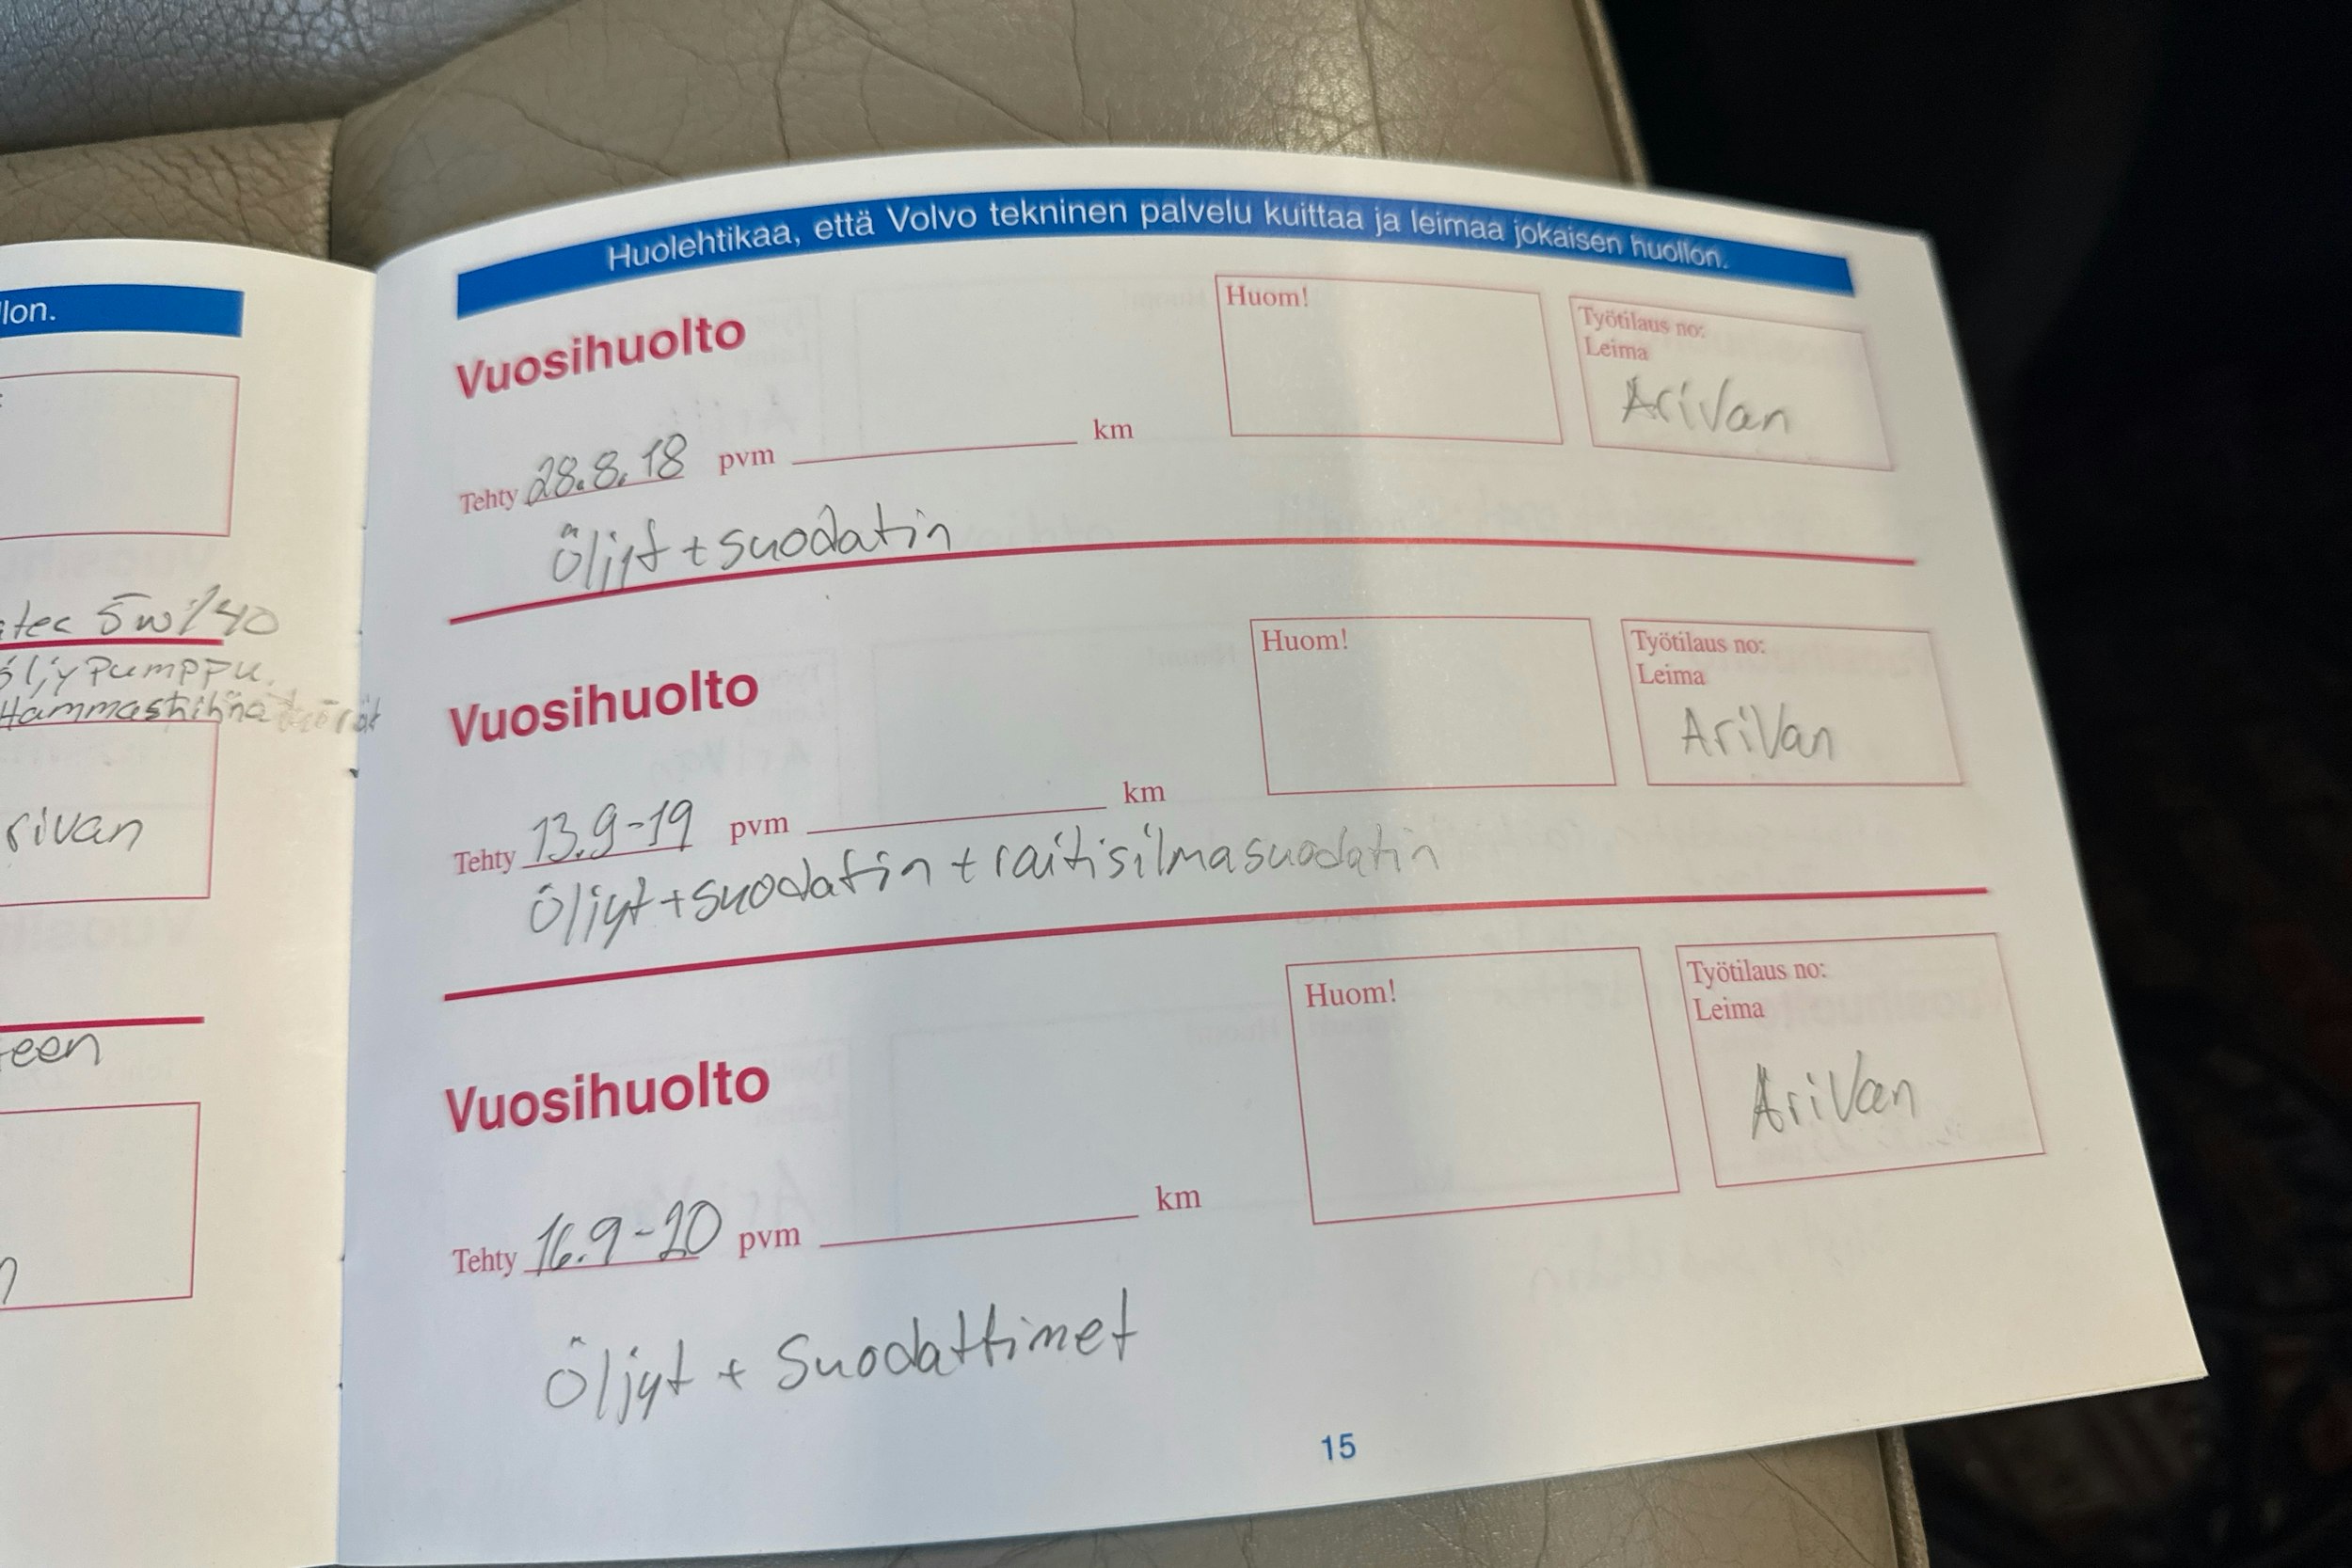 lon.
tec 5w/40
öljypumppu.
Hammashihna
rivan
een
Huolehtikaa, että Volvo tekninen palvelu kuittaa ja leimaa jokaisen huollon.
Vuosihuolto
Huom!
Työtilaus no:
Leima
AriVan
Tehty 28.8.18 pvm km
Öljyt + suodatin
Vuosihuolto
Huom!
Työtilaus no:
Leima
AriVan
Tehty 13.9-19 pvm km
Öljyt + suodatin + raitisilmasuodatin
Vuosihuolto
Huom!
Työtilaus no:
Leima
AriVan
Tehty 16.9-20 pvm km
Öljyt + Suodattimet
15